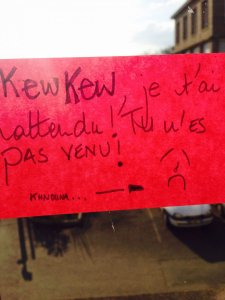 KEWKEW, je t'ai
attendu! Tu n'es
PAS VENU!